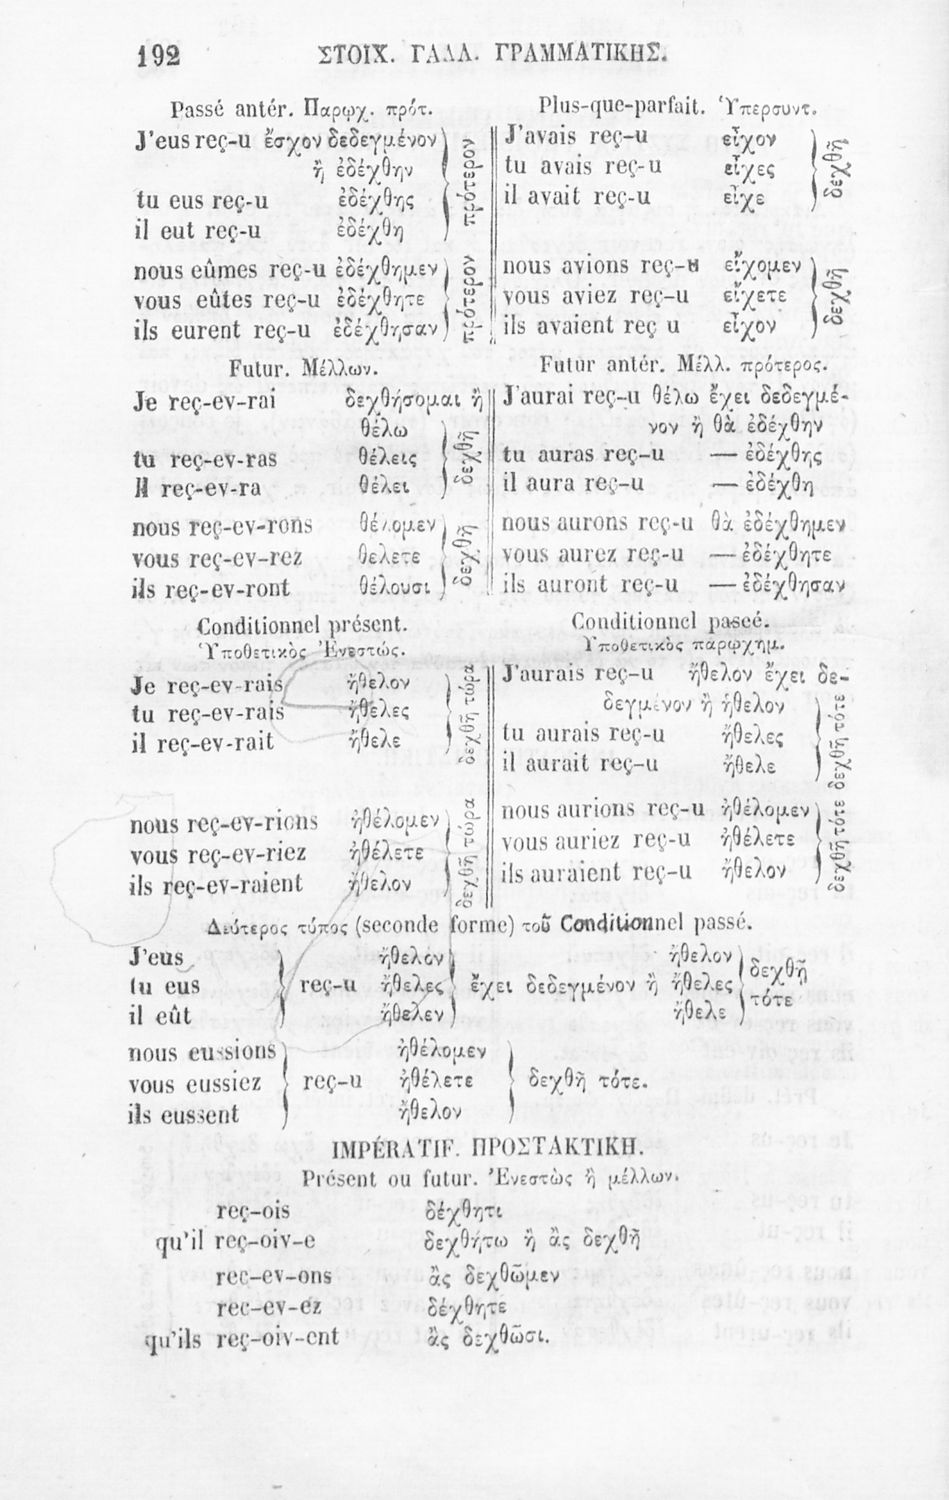 192 ΣΤΟΙΧ. ΓΑΛΛ. ΓΡΑΜΜΑΤΙΚΗΣ.
Passé antér. Παρῳχ. πρότ.
J'eus reç-u ἔσχον δεδεγμένον
ἢ ἐδέχθην
tu eus reç-u ἐδέχθης
il eut reç-u ἐδέχθη
πρότερον
nous eûmes reç-u ἐδέχθημεν
vous eûtes reç-u ἐδέχθητε
ils eurent reç-u ἐδέχθησαν
πρότερον
Plus-que-parfait. Ὑπερσυντ.
J'avais reç-u εἶχον
tu avais reç-u εἶχες
il avait reç-u εἶχε
δεχθῆ
nous avions reç-u εἴχομεν
vous aviez reç-u εἴχετε
ils avaient reç u εἶχον
δεχθῆ
Futur. Μέλλων.
Je reç-ev-rai δεχθήσομαι ἢ
θέλω
tu reç-ev-ras θέλεις
Il reç-ev-ra θέλει
δεχθῆ
nous reç-ev-rons θέλομεν
vous reç-ev-rez θελετε
ils reç-ev-ront θέλουσι
δεχθῆ
Futur antér. Μέλλ. πρότερος.
J'aurai reç-u θέλω ἔχει δεδεγμέ-
νον ἢ θὰ ἐδέχθην
tu auras reç-u — ἐδέχθης
il aura reç-u — ἐδέχθη
nous aurons reç-u θὰ ἐδέχθημεν
vous aurez reç-u — ἐδέχθητε
ils auront reç-u — ἐδέχθησαν
Conditionnel présent.
Ὑποθετικὸς Ἐνεστώς.
Je reç-ev-rais ἤθελον
tu reç-ev-rais ἤθελες
il reç-ev-rait ἤθελε
δεχθῆ τώρα
nous reç-ev-rions ἠθέλομεν
vous reç-ev-riez ἠθέλετε
ils reç-ev-raient ἤθελον
δεχθῆ τώρα
Conditionnel passé.
Ὑποθετικὸς παρῳχημ.
J'aurais reç-u ἤθελον ἔχει δε-
δεγμένον ἢ ἤθελον
tu aurais reç-u ἤθελες
il aurait reç-u ἤθελε
δεχθῆ τότε
nous aurions reç-u ἠθέλομεν
vous auriez reç-u ἠθέλετε
ils auraient reç-u ἤθελον
δεχθῆ τότε
Δεύτερος τύπος (seconde forme) τοῦ Conditionnel passé.
J'eus ἤθελον ἤθελον δεχθῆ
tu eus reç-u ἤθελες ἔχει δεδεγμένον ἢ ἤθελες τότε
il eût ἤθελεν ἤθελε
nous eussions ἠθέλομεν
vous eussiez reç-u ἠθέλετε δεχθῆ τότε.
ils eussent ἤθελον
IMPÉRATIF. ΠΡΟΣΤΑΚΤΙΚΗ.
Présent ou futur. Ἐνεστὼς ἢ μέλλων.
reç-ois δέχθητι
qu'il reç-oiv-e δεχθήτω ἢ ἂς δεχθῆ
rec-ev-ons ἂς δεχθῶμεν
rec-ev-ez δέχθητε
qu'ils reç-oiv-ent ἂς δεχθῶσι.